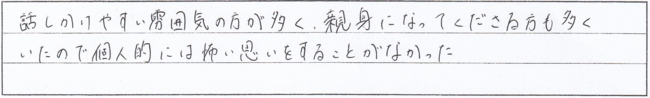 話しかけやすい雰囲気の方が多く、親身になってくださる方も多く
いたので個人的には怖い思いをすることがなかった